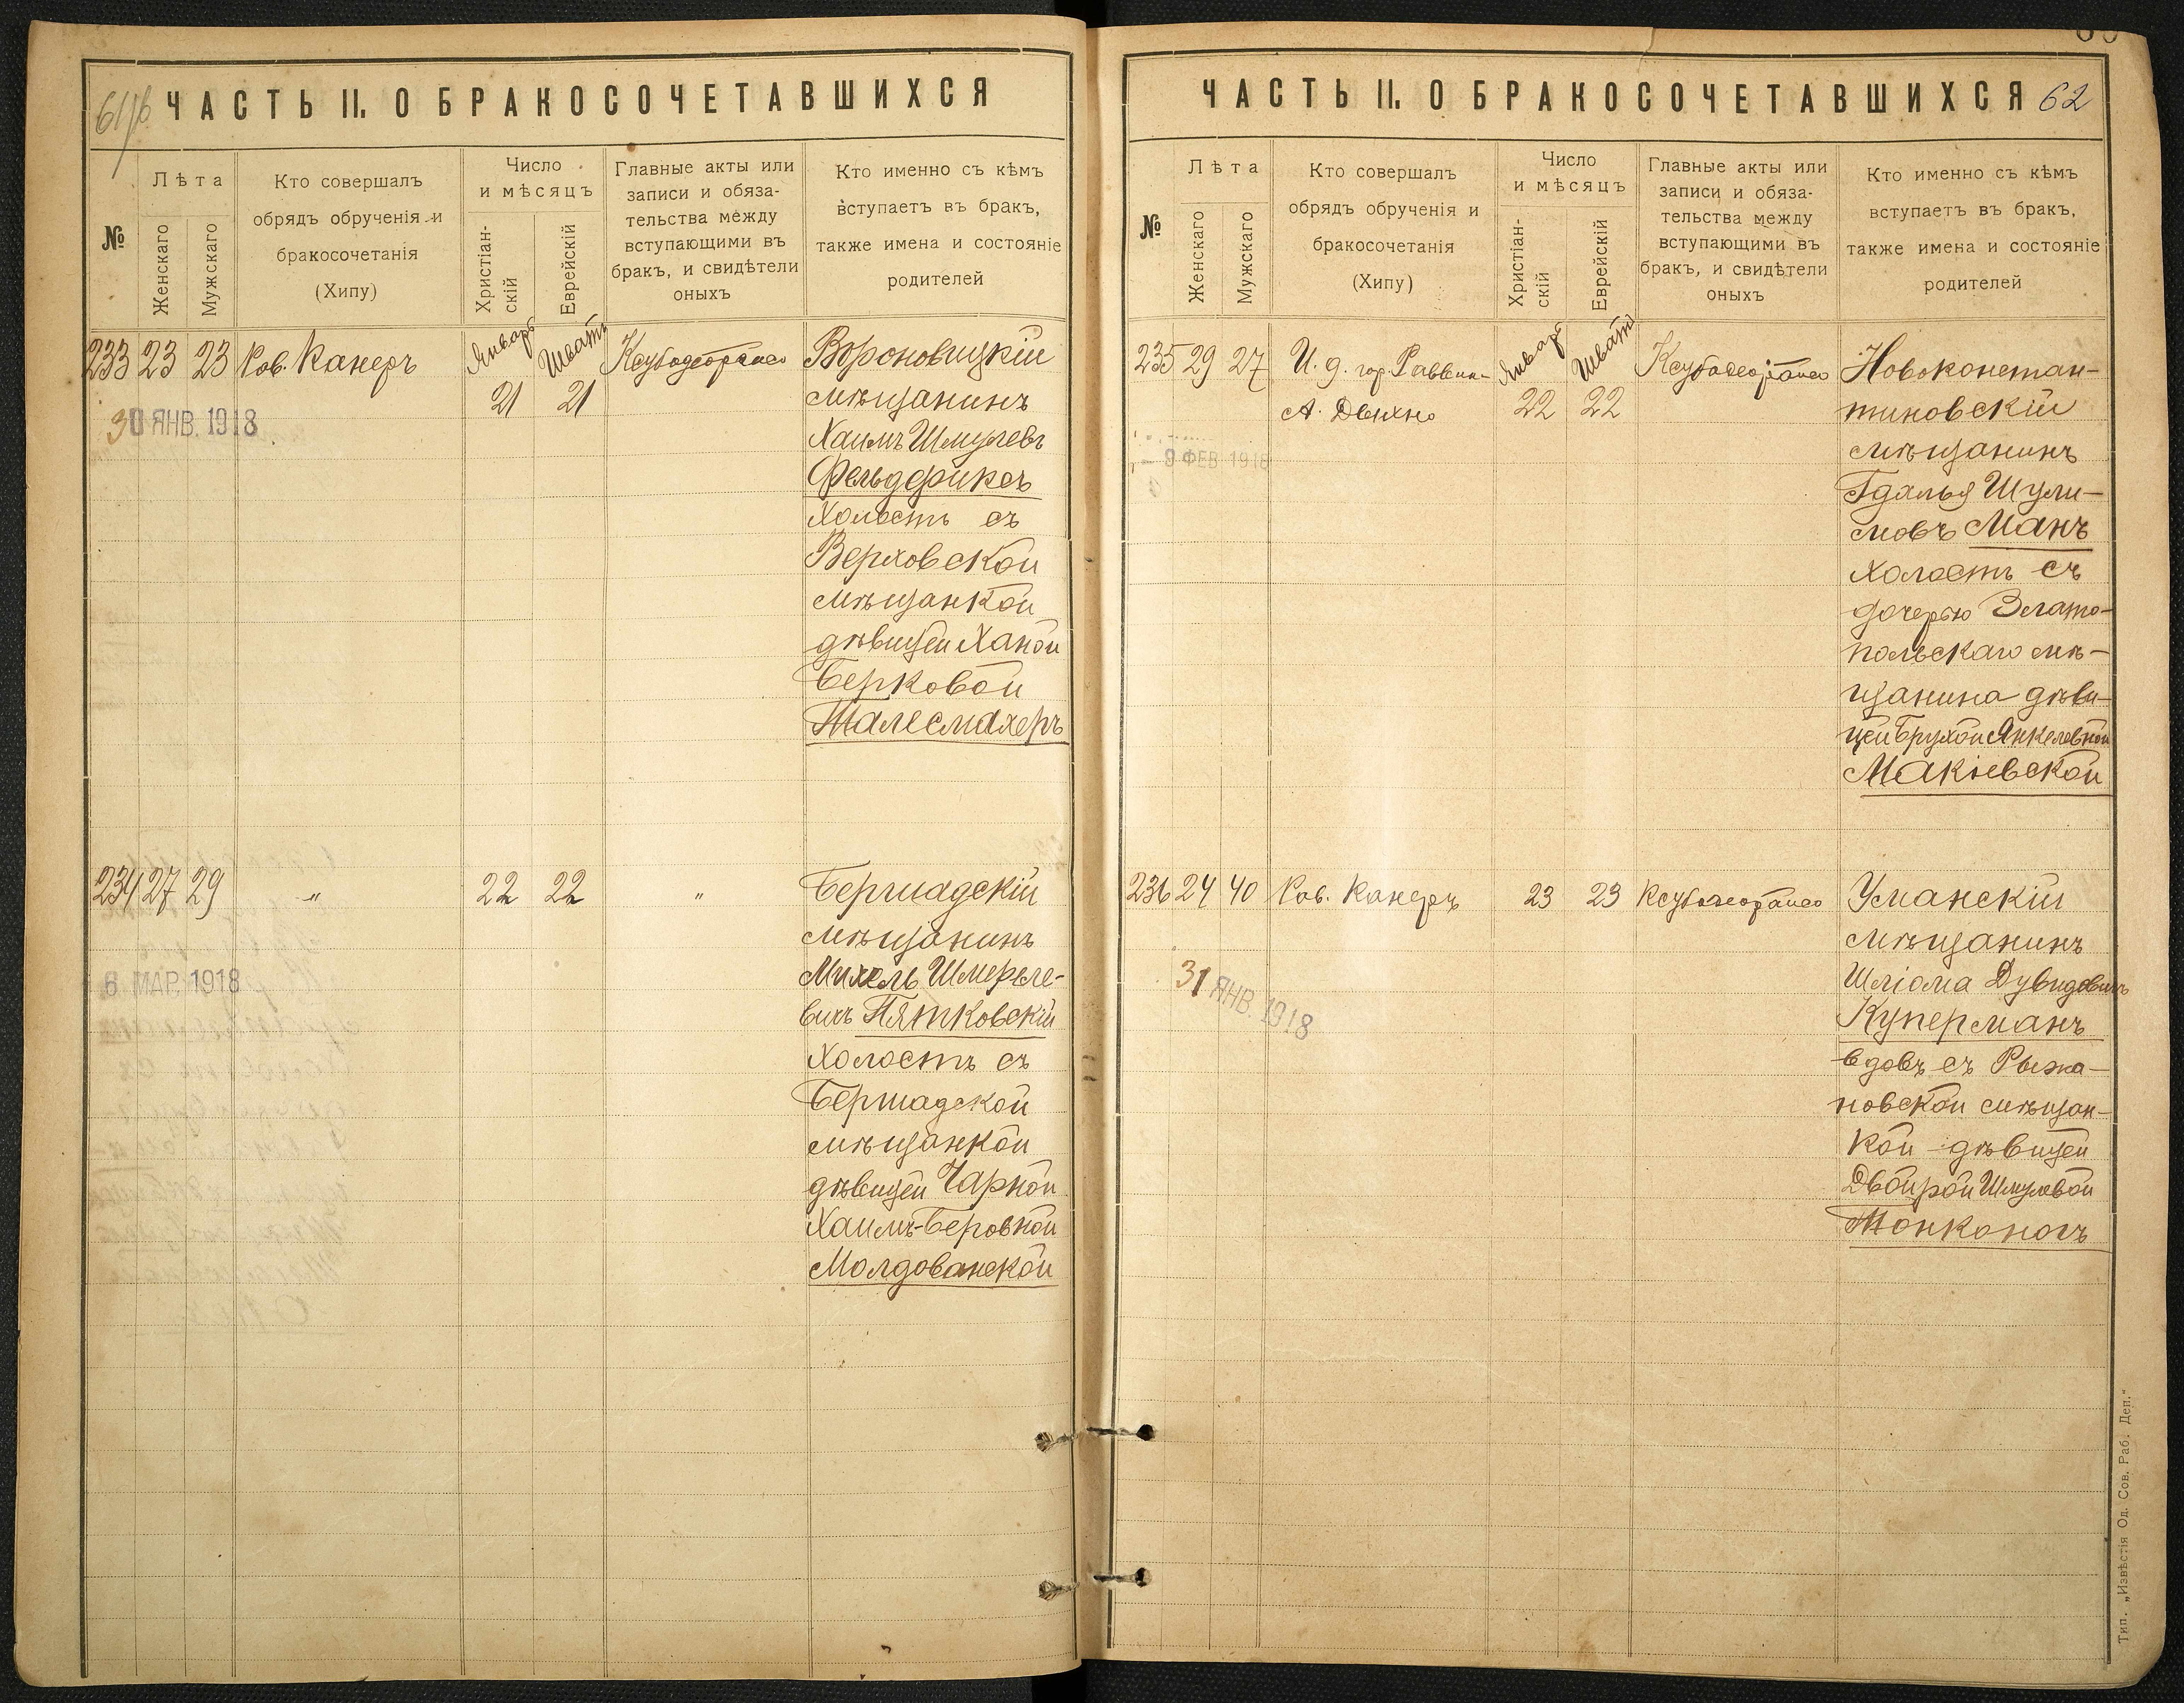 61/об.
ЧАСТЬ II. О БРАКОСОЧЕТАВШИХСЯ
№
Лѣта
Женскаго
Мужскаго
Кто совершалъ
обрядъ обрученія и
бракосочетанія
(Хипу)
Число
и мѣсяцъ
Христіан-
скій
Еврейскій
Главные акты или
записи и обяза-
тельства между
вступающими въ
бракъ, и свидѣтели
оныхъ
Кто именно съ кѣмъ
вступаетъ въ бракъ,
также имена и состояніе
родителей
233 23 23 Рав. Канеръ Январь 21 Шватъ 21
30 ЯНВ. 1918
Вороновицкій
мѣщанинъ
Хаимъ Шмулевъ
Фельдфиксъ
холостъ съ
Верховской
мѣщанкой
дѣвицей Ханой
Берковой
Талесмахеръ
234 27 29 " 22 22 "
6 МАР. 1918
Бершадскій
мѣщанинъ
Михель Шмереле-
вичъ Пятковскій
холостъ съ
Бершадской
мѣщанкой
дѣвицей Чарной
Хаимъ-Беровной
Молдованской
ЧАСТЬ II. О БРАКОСОЧЕТАВШИХСЯ 62
№
Лѣта
Женскаго
Мужскаго
Кто совершалъ
обрядъ обрученія и
бракосочетанія
(Хипу)
Число
и мѣсяцъ
Христіан-
скій
Еврейскій
Главные акты или
записи и обяза-
тельства между
вступающими въ
бракъ, и свидѣтели
оныхъ
Кто именно съ кѣмъ
вступаетъ въ бракъ,
также имена и состояніе
родителей
235 29 27 И. д. гор. Раввин- Январь Шватъ
А. Двихно 22 22
9 ФЕВ. 1918
Новоконстан-
тиновскій
мѣщанинъ
Гдалья Шули-
мовъ Манъ
холостъ съ
дочерью Злато-
польскаго мѣ-
щанина дѣви-
цей Брухой Янкелевной
Макіевской
236 24 40 Рав. Канеръ 23 23
31 ЯНВ. 1918
Уманскій
мѣщанинъ
Шліома Дувидовичъ
Куперманъ
вдовъ съ Рыжа-
новской мѣщан-
кой дѣвицей
Двойрой Шмулевой
Тонконогъ
Тип. „Извѣстія Од. Сов. Раб. Деп."